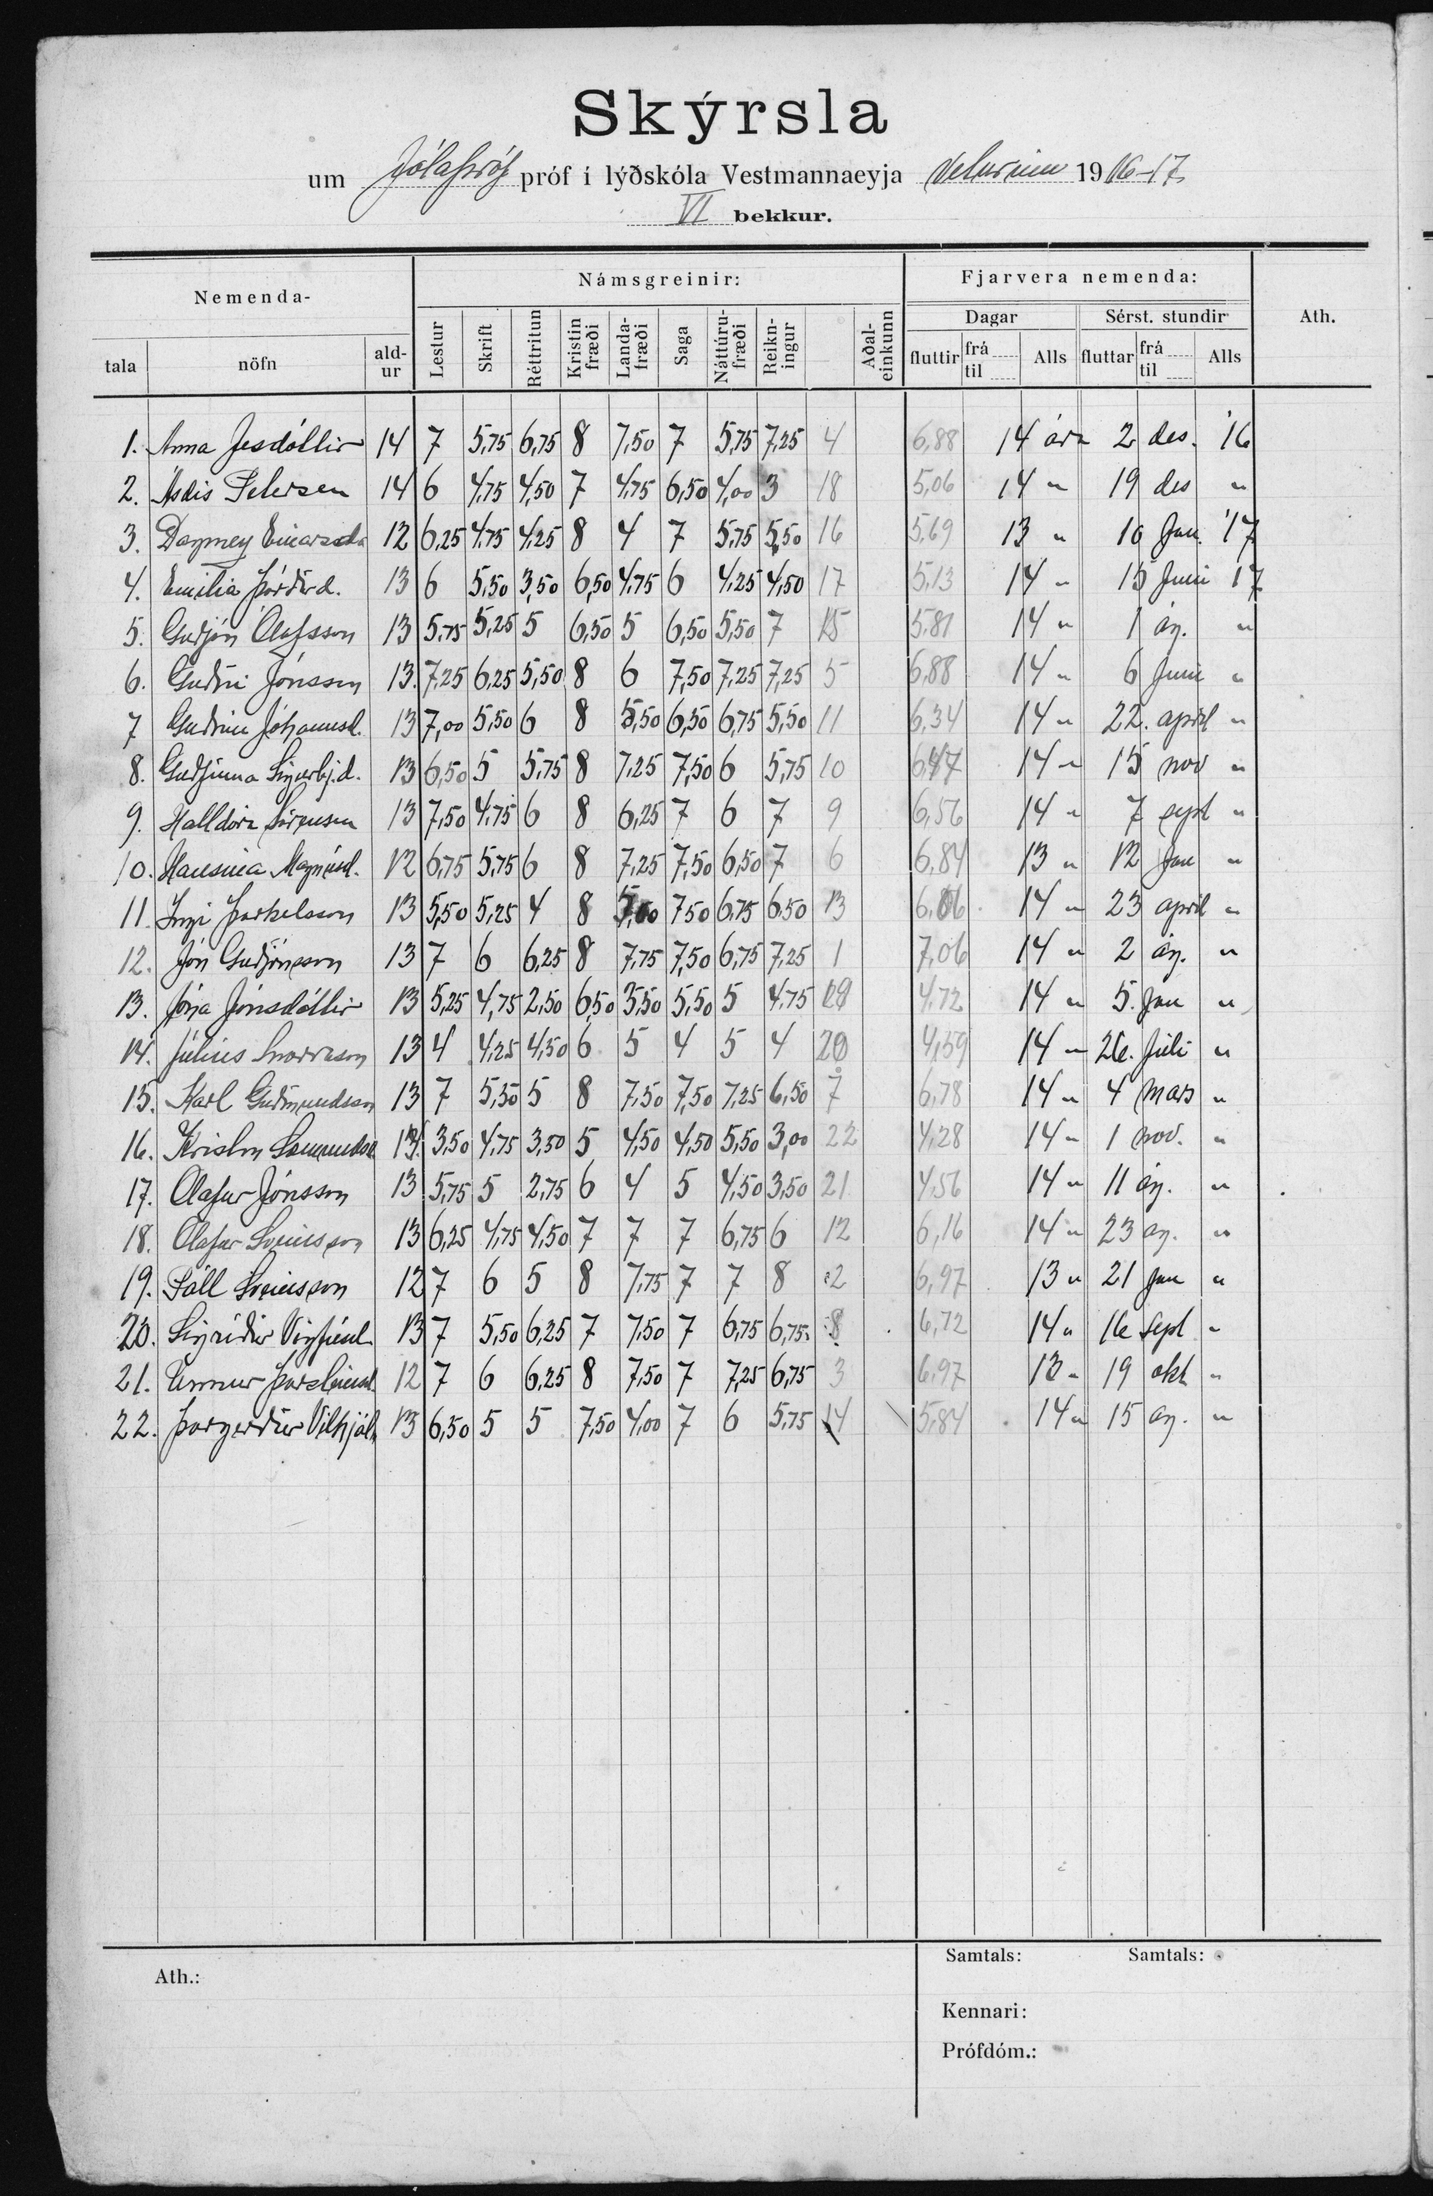 Skýrsla
um Jólapróf próf í lýðskóla Vestmannaeyja Veturinn 1916-17
VI bekkur.
Nemenda- Námsgreinir: Fjarvera nemenda: Ath.
Dagar Sérst. stundir
tala nöfn ald-ur Lestur Skrift Réttritun Kristin fræði Landa-fræði Saga Náttúru-fræði Reikn-ingur Aðal-einkunn fluttir frá til Alls fluttar frá til Alls
1. Anna Jesdóttir 14 7 5,75 6,75 8 7,50 7 5,75 7,25 4 6,88 14 ára 2 des. '16
2. Ásdis Petersen 14 6 4,75 4,50 7 4,75 6,50 4,00 3 18 5,06 14 " 19 des "
3. Dagmey Einarsd 12 6,25 4,75 4,25 8 4 7 5,75 5,50 16 5,69 13 " 10 Jan. '17
4. Emilia Þórðard. 13 6 5,50 3,50 6,50 4,75 6 4,25 4,50 17 5,13 14 " 15 Juni 17
5. Guðjón Ólafsson 13 5,75 5,25 5 6,50 5 6,50 5,50 7 15 5,81 14 " 1 ág. "
6. Guðni Jónsson 13. 7,25 6,25 5,50 8 6 7,50 7,25 7,25 5 6,88 14 " 6 Juni "
7 Guðrún Jóhannsd. 13 7,00 5,50 6 8 5,50 6,50 6,75 5,50 11 6,34 14 " 22. april "
8. Guðfinna Sigurbj.d. 13 6,50 5 5,75 8 7,25 7,50 6 5,75 10 6,47 14 " 15 nov "
9. Halldóra Sörensen 13 7,50 4,75 6 8 6,25 7 6 7 9 6,56 14 " 7 sept "
10. Hansina Magnúsd. 12 6,75 5,75 6 8 7,25 7,50 6,50 7 6 6,84 13 " 12 Jan "
11. Ingi Þorkelsson 13 5,50 5,25 4 8 5,00 7,50 6,75 6,50 13 6,06 14 " 23 april "
12. Jón Guðjónsson 13 7 6 6,25 8 7,75 7,50 6,75 7,25 1 7,06 14 " 2 ág. "
13. Jónsdóttir 13 5,25 4,75 2,50 6,50 3,50 5,50 5 4,75 19 4,72 14 " 5. Jan "
14. Július Snorrason 13 4 4,25 4,50 6 5 4 5 4 20 4,59 14 " 26. júli "
15. Karl Guðmundsson 13 7 5,50 5 8 7,50 7,50 7,25 6,50 7 6,78 14 " 4 mars "
16. Kristm 3,50 4,75 3,50 5 4,50 4,50 5,50 3,00 22 4,28 14 " 1 nov. "
17. Ólafur Jónsson 13 5,75 5 2,75 6 4 5 4,50 3,50 21 4,56 14 " 11 ág. "
18. Ólafur Sveinsson 13 6,25 4,75 4,50 7 7 7 6,75 6 12 6,16 14 " 23 ág. "
19. Páll Sveinsson 12 7 6 5 8 7,75 7 7 8 2 6,97 13 " 21 Jan "
20. Sigríður Vigfúsd. 13 7 5,50 6,25 7 7,50 7 6,75 6,75 8 6,72 14 " 16 sept "
21. Unnur Þorsteinsd. 12 7 6 6,25 8 7,50 7 7,25 6,75 3 6,97 13 " 19 okt "
22. Þorgerður Vilhjál. 13 6,50 5 5 7,50 4,00 7 6 5,75 14 5,84 14 " 15 ág. "
Ath.: Samtals: Samtals:
Kennari:
Prófdóm.: